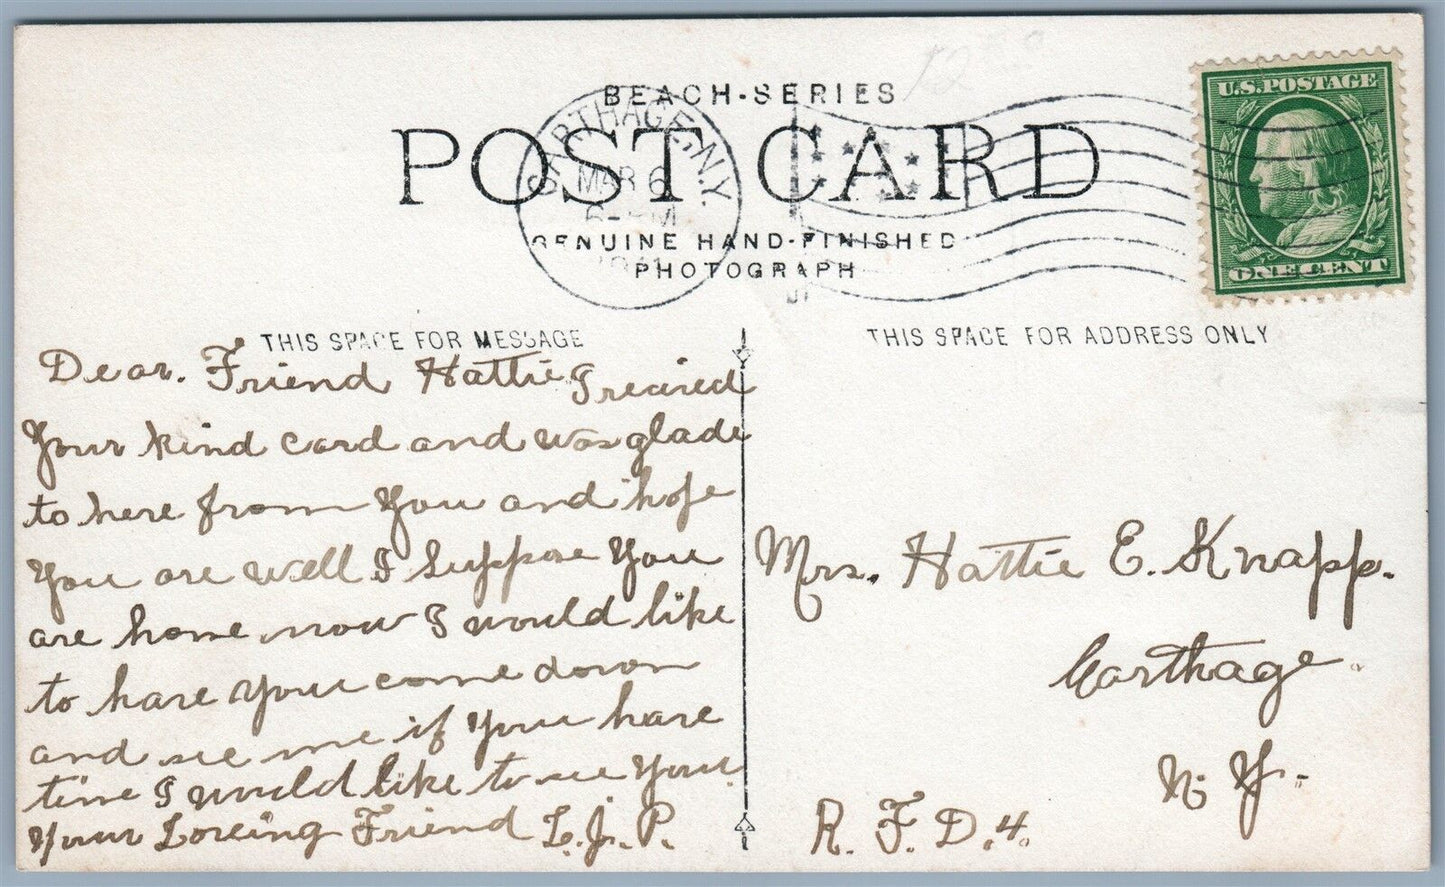 BEACH-SERIES
POST CARD
GENUINE HAND-FINISHED
PHOTOGRAPH
CARTHAGE, N.Y.
MAR 6
6-
U.S. POSTAGE
ONE CENT
THIS SPACE FOR MESSAGE
Dear. Friend Hattie I recived
Your kind card and was glade
to here from You and hope
You are well I Suppose You
are home now I would like
to have You come down
and see me if You have
time I would like to see You
Your Loveing Friend L.J.P.
THIS SPACE FOR ADDRESS ONLY
Mrs. Hattie E. Knapp.
Carthage
N. Y.
R. F. D. 4.